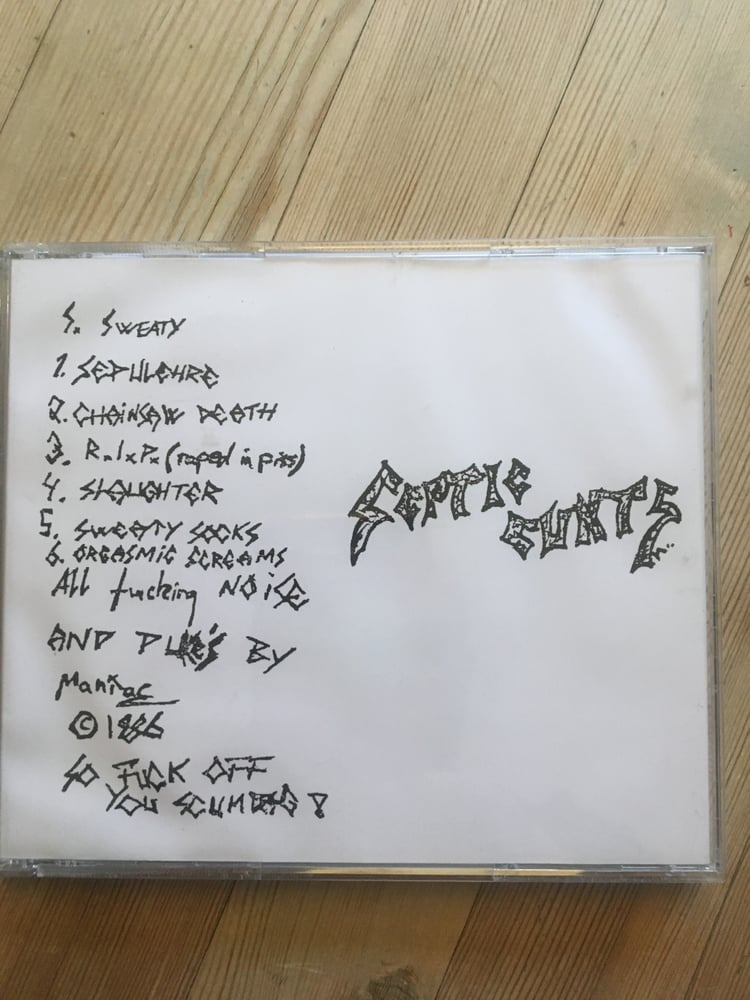 S. SWEATY
1. SEPULCHRE
2. CHAINSAW DEATH
3. R.I.P. (raped in piss)
4. SLAUGHTER
5. SWEATY SOCKS
6. ORGASMIC SCREAMS
All fucking NOISE
AND PUKES BY
Maniac
© 1986
SO FUCK OFF
YOU SCUMBAG!
SEPTIC
CUNTS